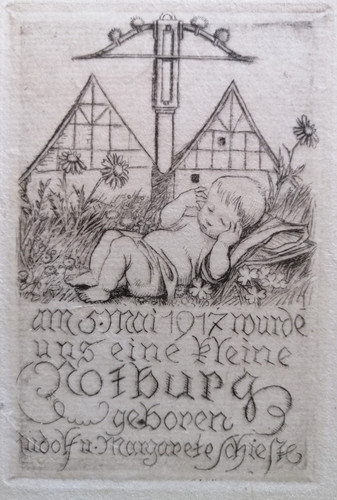 am 5. Mai 1917 wurde
uns eine kleine
Notburg
geboren
Rudolf u. Margarete Schiestl